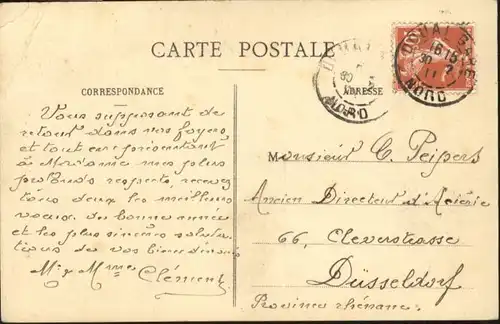 CARTE POSTALE
CORRESPONDANCE
Vous supposant de
retour dans vos foyers
et tout en présentant
à Madame mes plus
profonds respects, recevez
tous deux les meilleurs
vœux de bonne année
et les plus sincères saluta-
tions de vos bien dévoués
Mr & Mme Clément
DOUAI GARE
16 15
30
11
NORD
DOUAI
30
NORD
ADRESSE
Monsieur C. Peipers
Ancien Directeur d'Aciérie
66, Cleverstrasse
Düsseldorf
Province rhénane.